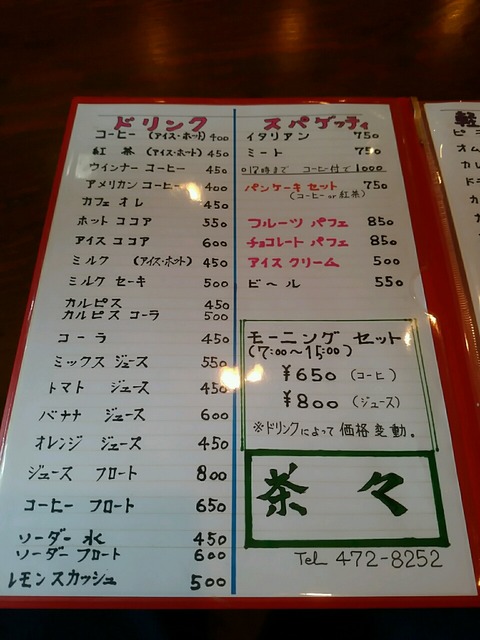 ドリンク
コーヒー (アイス・ホット) 400
紅茶 (アイス・ホット) 450
ウインナー コーヒー 450
アメリカン コーヒー 400
カフェ オレ 450
ホット ココア 550
アイス ココア 600
ミルク (アイス・ホット) 450
ミルク セーキ 500
カルピス 450
カルピス コーラ 500
コーラ 450
ミックス ジュース 550
トマト ジュース 450
バナナ ジュース 600
オレンジ ジュース 450
ジュース フロート 800
コーヒー フロート 650
ソーダー 水 450
ソーダー フロート 600
レモンスカッシュ 500
スパゲッティ
イタリアン 750
ミート 750
コーヒー付で 1000
パンケーキ セット 750
(コーヒー or 紅茶)
フルーツ パフェ 850
チョコレート パフェ 850
アイス クリーム 500
ビール 550
モーニング セット
(7:00〜15:00)
¥650 (コーヒ)
¥800 (ジュース)
※ドリンクによって価格変動。
茶々
Tel 472-8252
軽